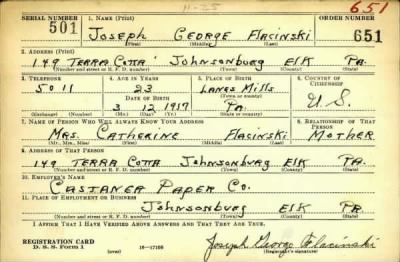 11-25
651
SERIAL NUMBER 1. NAME (Print) ORDER NUMBER
501 JOSEPH GEORGE FLACINSKI 651
(First) (Middle) (Last)
2. ADDRESS (Print)
149 TERRA COTTA JOHNSONBURG ELK PA.
(Number and street or R. F. D. number) (Town) (County) (State)
3. TELEPHONE 4. AGE IN YEARS 5. PLACE OF BIRTH 6. COUNTRY OF CITIZENSHIP
5011 23 LANES MILLS U. S.
DATE OF BIRTH (Town or county)
3 12 1917 PA.
(Exchange) (Number) (Mo.) (Day) (Yr.) (State or country)
7. NAME OF PERSON WHO WILL ALWAYS KNOW YOUR ADDRESS 8. RELATIONSHIP OF THAT PERSON
MRS. CATHERINE FLACINSKI MOTHER
(Mr., Mrs., Miss) (First) (Middle) (Last)
9. ADDRESS OF THAT PERSON
149 TERRA COTTA JOHNSONBURG ELK PA.
(Number and street or R. F. D. number) (Town) (County) (State)
10. EMPLOYER'S NAME
CASTANEA PAPER CO.
11. PLACE OF EMPLOYMENT OR BUSINESS
JOHNSONBURG ELK PA.
(Number and street or R. F. D. number) (Town) (County) (State)
I AFFIRM THAT I HAVE VERIFIED ABOVE ANSWERS AND THAT THEY ARE TRUE.
REGISTRATION CARD
D. S. S. Form 1 (over) 16-17105 Joseph George Flacinski
(Registrant's signature)